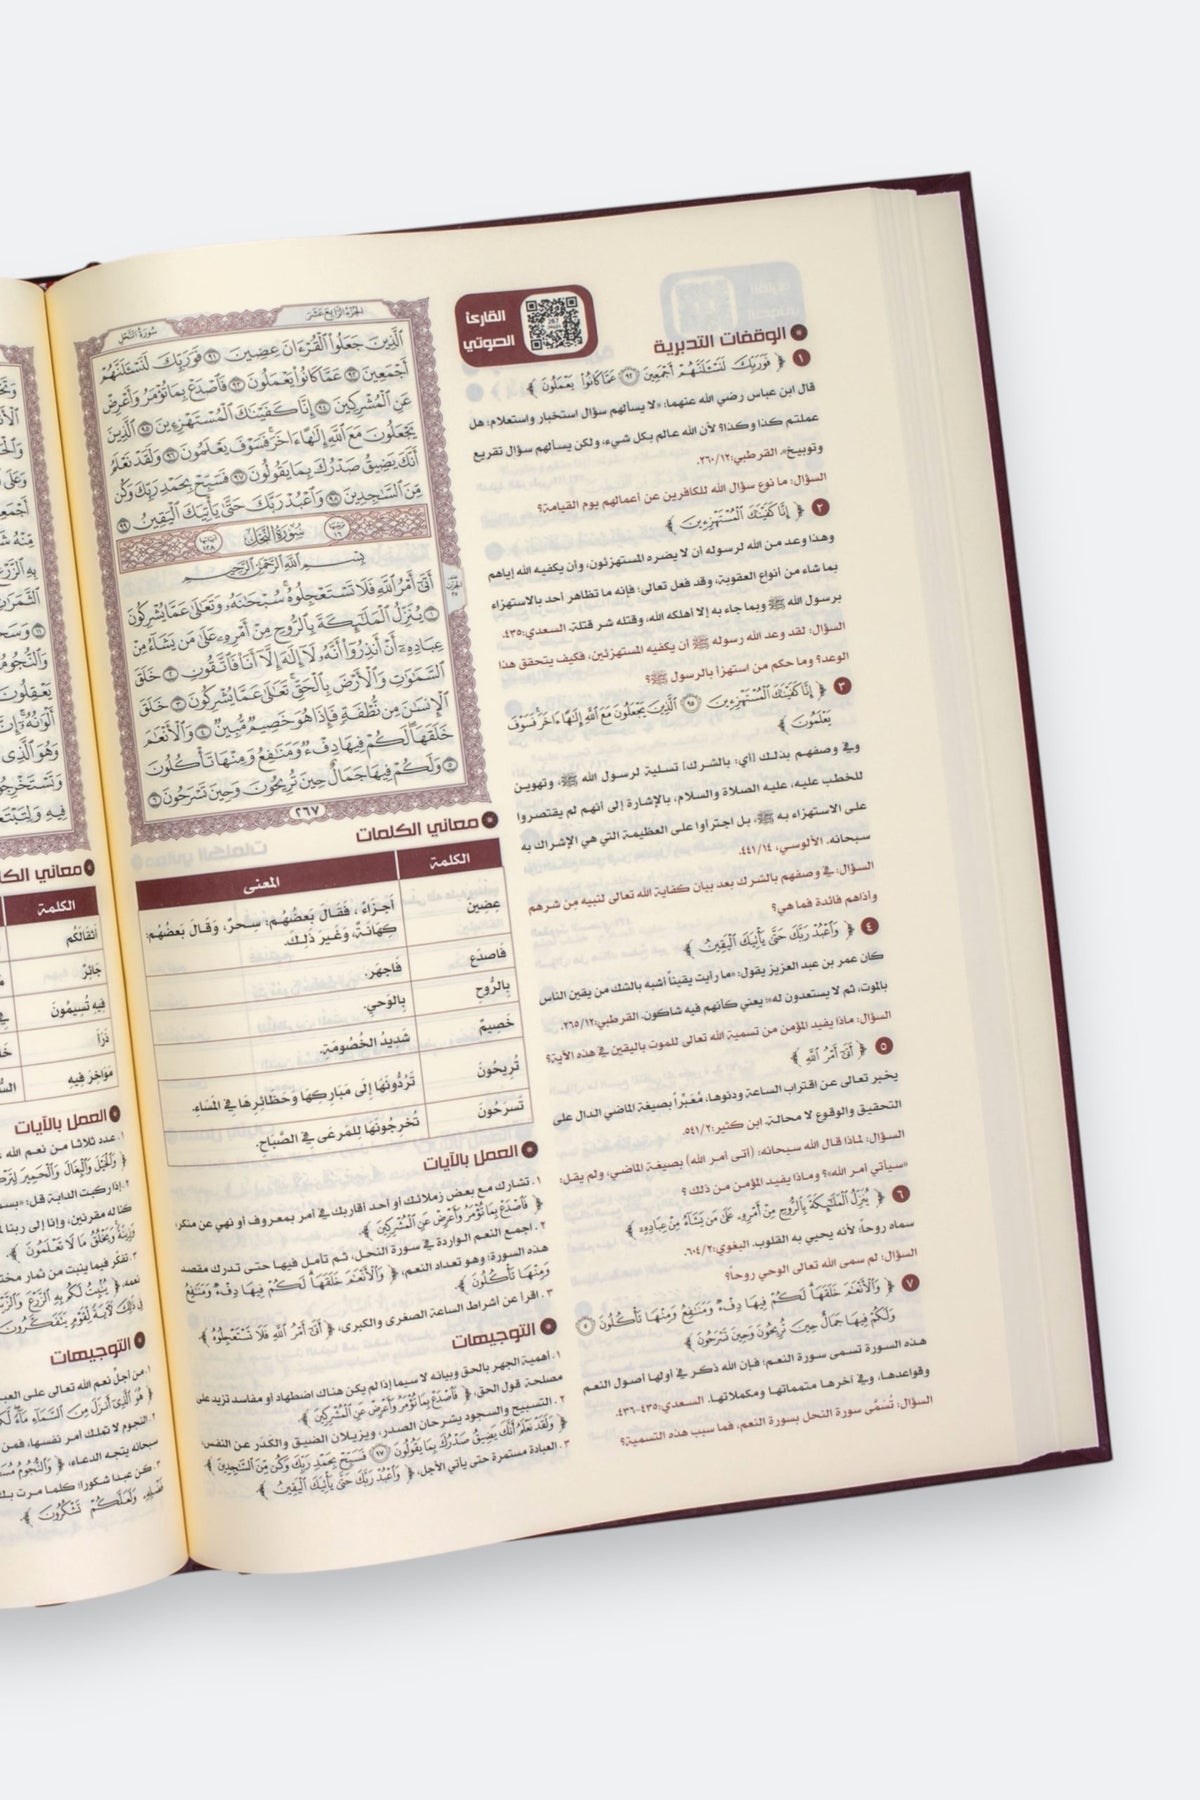 سُورَةُ النَّحْلِ
الجُزْءُ الرَّابِعَ عَشَرَ
ٱلَّذِينَ جَعَلُوا۟ ٱلْقُرْءَانَ عِضِينَ ٩١ فَوَرَبِّكَ لَنَسْـَٔلَنَّهُمْ
أَجْمَعِينَ ٩٢ عَمَّا كَانُوا۟ يَعْمَلُونَ ٩٣ فَٱصْدَعْ بِمَا تُؤْمَرُ وَأَعْرِضْ
عَنِ ٱلْمُشْرِكِينَ ٩٤ إِنَّا كَفَيْنَٰكَ ٱلْمُسْتَهْزِءِينَ ٩٥ ٱلَّذِينَ
يَجْعَلُونَ مَعَ ٱللَّهِ إِلَٰهًا ءَاخَرَ فَسَوْفَ يَعْلَمُونَ ٩٦ وَلَقَدْ نَعْلَمُ
أَنَّكَ يَضِيقُ صَدْرُكَ بِمَا يَقُولُونَ ٩٧ فَسَبِّحْ بِحَمْدِ رَبِّكَ وَكُن
مِّنَ ٱلسَّٰجِدِينَ ٩٨ وَٱعْبُدْ رَبَّكَ حَتَّىٰ يَأْتِيَكَ ٱلْيَقِينُ ٩٩
ترتيبها ١٦ سُورَةُ النَّحْلِ آياتها ١٢٨
بِسْمِ ٱللَّهِ ٱلرَّحْمَٰنِ ٱلرَّحِيمِ
أَتَىٰٓ أَمْرُ ٱللَّهِ فَلَا تَسْتَعْجِلُوهُ سُبْحَٰنَهُۥ وَتَعَٰلَىٰ عَمَّا يُشْرِكُونَ
١ يُنَزِّلُ ٱلْمَلَٰٓئِكَةَ بِٱلرُّوحِ مِنْ أَمْرِهِۦ عَلَىٰ مَن يَشَآءُ مِنْ
عِبَادِهِۦٓ أَنْ أَنذِرُوٓا۟ أَنَّهُۥ لَآ إِلَٰهَ إِلَّآ أَنَا۠ فَٱتَّقُونِ ٢ خَلَقَ
ٱلسَّمَٰوَٰتِ وَٱلْأَرْضَ بِٱلْحَقِّ تَعَٰلَىٰ عَمَّا يُشْرِكُونَ ٣ خَلَقَ
ٱلْإِنسَٰنَ مِن نُّطْفَةٍ فَإِذَا هُوَ خَصِيمٌ مُّبِينٌ ٤ وَٱلْأَنْعَٰمَ
خَلَقَهَا لَكُمْ فِيهَا دِفْءٌ وَمَنَٰفِعُ وَمِنْهَا تَأْكُلُونَ
٥ وَلَكُمْ فِيهَا جَمَالٌ حِينَ تُرِيحُونَ وَحِينَ تَسْرَحُونَ ٦
٢٦٧
معاني الكلمات
الكلمة المعنى
عِضِينَ أَجزَاءً، فَقَالَ بَعضُهُم: سِحرٌ، وَقَالَ بَعضُهُم:
كِهَانَةٌ، وَغَيرَ ذَلِكَ.
فَاصدَع فَاجهَر.
بِالرُّوحِ بِالوَحيِ.
خَصِيمٌ شَدِيدُ الخُصُومَةِ.
تُرِيحُونَ تَرُدُّونَهَا إِلَى مَبَارِكِهَا وَحَظَائِرِهَا فِي المَسَاءِ.
تَسرَحُونَ تُخرِجُونَهَا لِلمَرعَى فِي الصَّبَاحِ.
العمل بالآيات
١. تشارك مع بعض زملائك أو أحد أقاربك في أمر بمعروف أو نهي عن منكر،
﴿ فَٱصْدَعْ بِمَا تُؤْمَرُ وَأَعْرِضْ عَنِ ٱلْمُشْرِكِينَ ﴾.
٢. اجمع النعم الواردة في سورة النحل، ثم تأمل فيها حتى تدرك مقصد
هذه السورة؛ وهو تعداد النعم، ﴿ وَٱلْأَنْعَٰمَ خَلَقَهَا لَكُمْ فِيهَا دِفْءٌ وَمَنَٰفِعُ
وَمِنْهَا تَأْكُلُونَ ﴾.
٣. اقرأ عن أشراط الساعة الصغرى والكبرى، ﴿ أَتَىٰٓ أَمْرُ ٱللَّهِ فَلَا تَسْتَعْجِلُوهُ ﴾.
التوجيهات
١. أهمية الجهر بالحق وبيانه لا سيما إذا لم يكن هناك اضطهاد أو مفاسد تزيد على
مصلحة قول الحق، ﴿ فَٱصْدَعْ بِمَا تُؤْمَرُ وَأَعْرِضْ عَنِ ٱلْمُشْرِكِينَ ﴾.
٢. التسبيح والسجود يشرحان الصدر، ويزيلان الضيق والكَدَر عن النفس،
﴿ وَلَقَدْ نَعْلَمُ أَنَّكَ يَضِيقُ صَدْرُكَ بِمَا يَقُولُونَ ٩٧ فَسَبِّحْ بِحَمْدِ رَبِّكَ وَكُن مِّنَ ٱلسَّٰجِدِينَ ﴾
٣. العبادة مستمرة حتى يأتي الأجل، ﴿ وَٱعْبُدْ رَبَّكَ حَتَّىٰ يَأْتِيَكَ ٱلْيَقِينُ ﴾
القارئ
الصوتي
267
الوقفات التدبرية
١ ﴿ فَوَرَبِّكَ لَنَسْـَٔلَنَّهُمْ أَجْمَعِينَ ٩٢ عَمَّا كَانُوا۟ يَعْمَلُونَ ﴾
قال ابن عباس رضي الله عنهما: «لا يسألهم سؤال استخبار واستعلام: هل
عملتم كذا وكذا؟ لأن الله عالم بكل شيء، ولكن يسألهم سؤال تقريع
وتوبيخ». القرطبي:٢٦٠/١٢.
السؤال: ما نوع سؤال الله للكافرين عن أعمالهم يوم القيامة؟
٢ ﴿ إِنَّا كَفَيْنَٰكَ ٱلْمُسْتَهْزِءِينَ ﴾
وهذا وعد من الله لرسوله أن لا يضره المستهزئون، وأن يكفيه الله إياهم
بما شاء من أنواع العقوبة، وقد فعل تعالى؛ فإنه ما تظاهر أحد بالاستهزاء
برسول الله ﷺ وبما جاء به إلا أهلكه الله، وقتله شر قتلة. السعدي:٤٣٥.
السؤال: لقد وعد الله رسوله ﷺ أن يكفيه المستهزئين، فكيف يتحقق هذا
الوعد؟ وما حكم من استهزأ بالرسول ﷺ؟
٣ ﴿ إِنَّا كَفَيْنَٰكَ ٱلْمُسْتَهْزِءِينَ ٩٥ ٱلَّذِينَ يَجْعَلُونَ مَعَ ٱللَّهِ إِلَٰهًا ءَاخَرَ فَسَوْفَ
يَعْلَمُونَ ﴾
وفي وصفهم بذلك [أي: بالشرك] تسلية لرسول الله ﷺ، وتهوين
للخطب عليه، عليه الصلاة والسلام، بالإشارة إلى أنهم لم يقتصروا
على الاستهزاء به ﷺ، بل اجترأوا على العظيمة التي هي الإشراك به
سبحانه. الألوسي، ٤٤١/١٤.
السؤال: في وصفهم بالشرك بعد بيان كفاية الله تعالى لنبيه مِن شرهم
وأذاهم فائدة فما هي؟
٤ ﴿ وَٱعْبُدْ رَبَّكَ حَتَّىٰ يَأْتِيَكَ ٱلْيَقِينُ ﴾
كان عمر بن عبد العزيز يقول: «ما رأيت يقيناً أشبه بالشك من يقين الناس
بالموت، ثم لا يستعدون له»؛ يعني كأنهم فيه شاكون. القرطبي:٢٦٥/١٢.
السؤال: ماذا يفيد المؤمن من تسمية الله تعالى للموت باليقين في هذه الآية؟
٥ ﴿ أَتَىٰٓ أَمْرُ ٱللَّهِ ﴾
يخبر تعالى عن اقتراب الساعة ودنوها، مُعَبِّراً بصيغة الماضي الدال على
التحقيق والوقوع لا محالة. ابن كثير:٥٤١/٢.
السؤال: لماذا قال الله سبحانه: (أتى أمر الله) بصيغة الماضي، ولم يقل:
«سيأتي أمر الله»؟ وماذا يفيد المؤمن من ذلك؟
٦ ﴿ يُنَزِّلُ ٱلْمَلَٰٓئِكَةَ بِٱلرُّوحِ مِنْ أَمْرِهِۦ عَلَىٰ مَن يَشَآءُ مِنْ عِبَادِهِۦٓ ﴾
سماه روحاً؛ لأنه يحيي به القلوب. البغوي:٦٠٤/٢.
السؤال: لم سمى الله تعالى الوحي روحاً؟
٧ ﴿ وَٱلْأَنْعَٰمَ خَلَقَهَا لَكُمْ فِيهَا دِفْءٌ وَمَنَٰفِعُ وَمِنْهَا تَأْكُلُونَ ٥
وَلَكُمْ فِيهَا جَمَالٌ حِينَ تُرِيحُونَ وَحِينَ تَسْرَحُونَ ﴾
هذه السورة تسمى سورة النعم؛ فإن الله ذكر في أولها أصول النعم
وقواعدها، وفي آخرها متمماتها ومكملاتها. السعدي:٤٣٥-٤٣٦.
السؤال: تُسَمَّى سورة النحل بسورة النعم، فما سبب هذه التسمية؟
معاني
الكلمة
أَثقَالَكُم
جَائِرٌ
فِيهِ تُسِيمُونَ
ذَرَأَ
مَوَاخِرَ فِيهِ
العمل بالآيات
التوجيهات